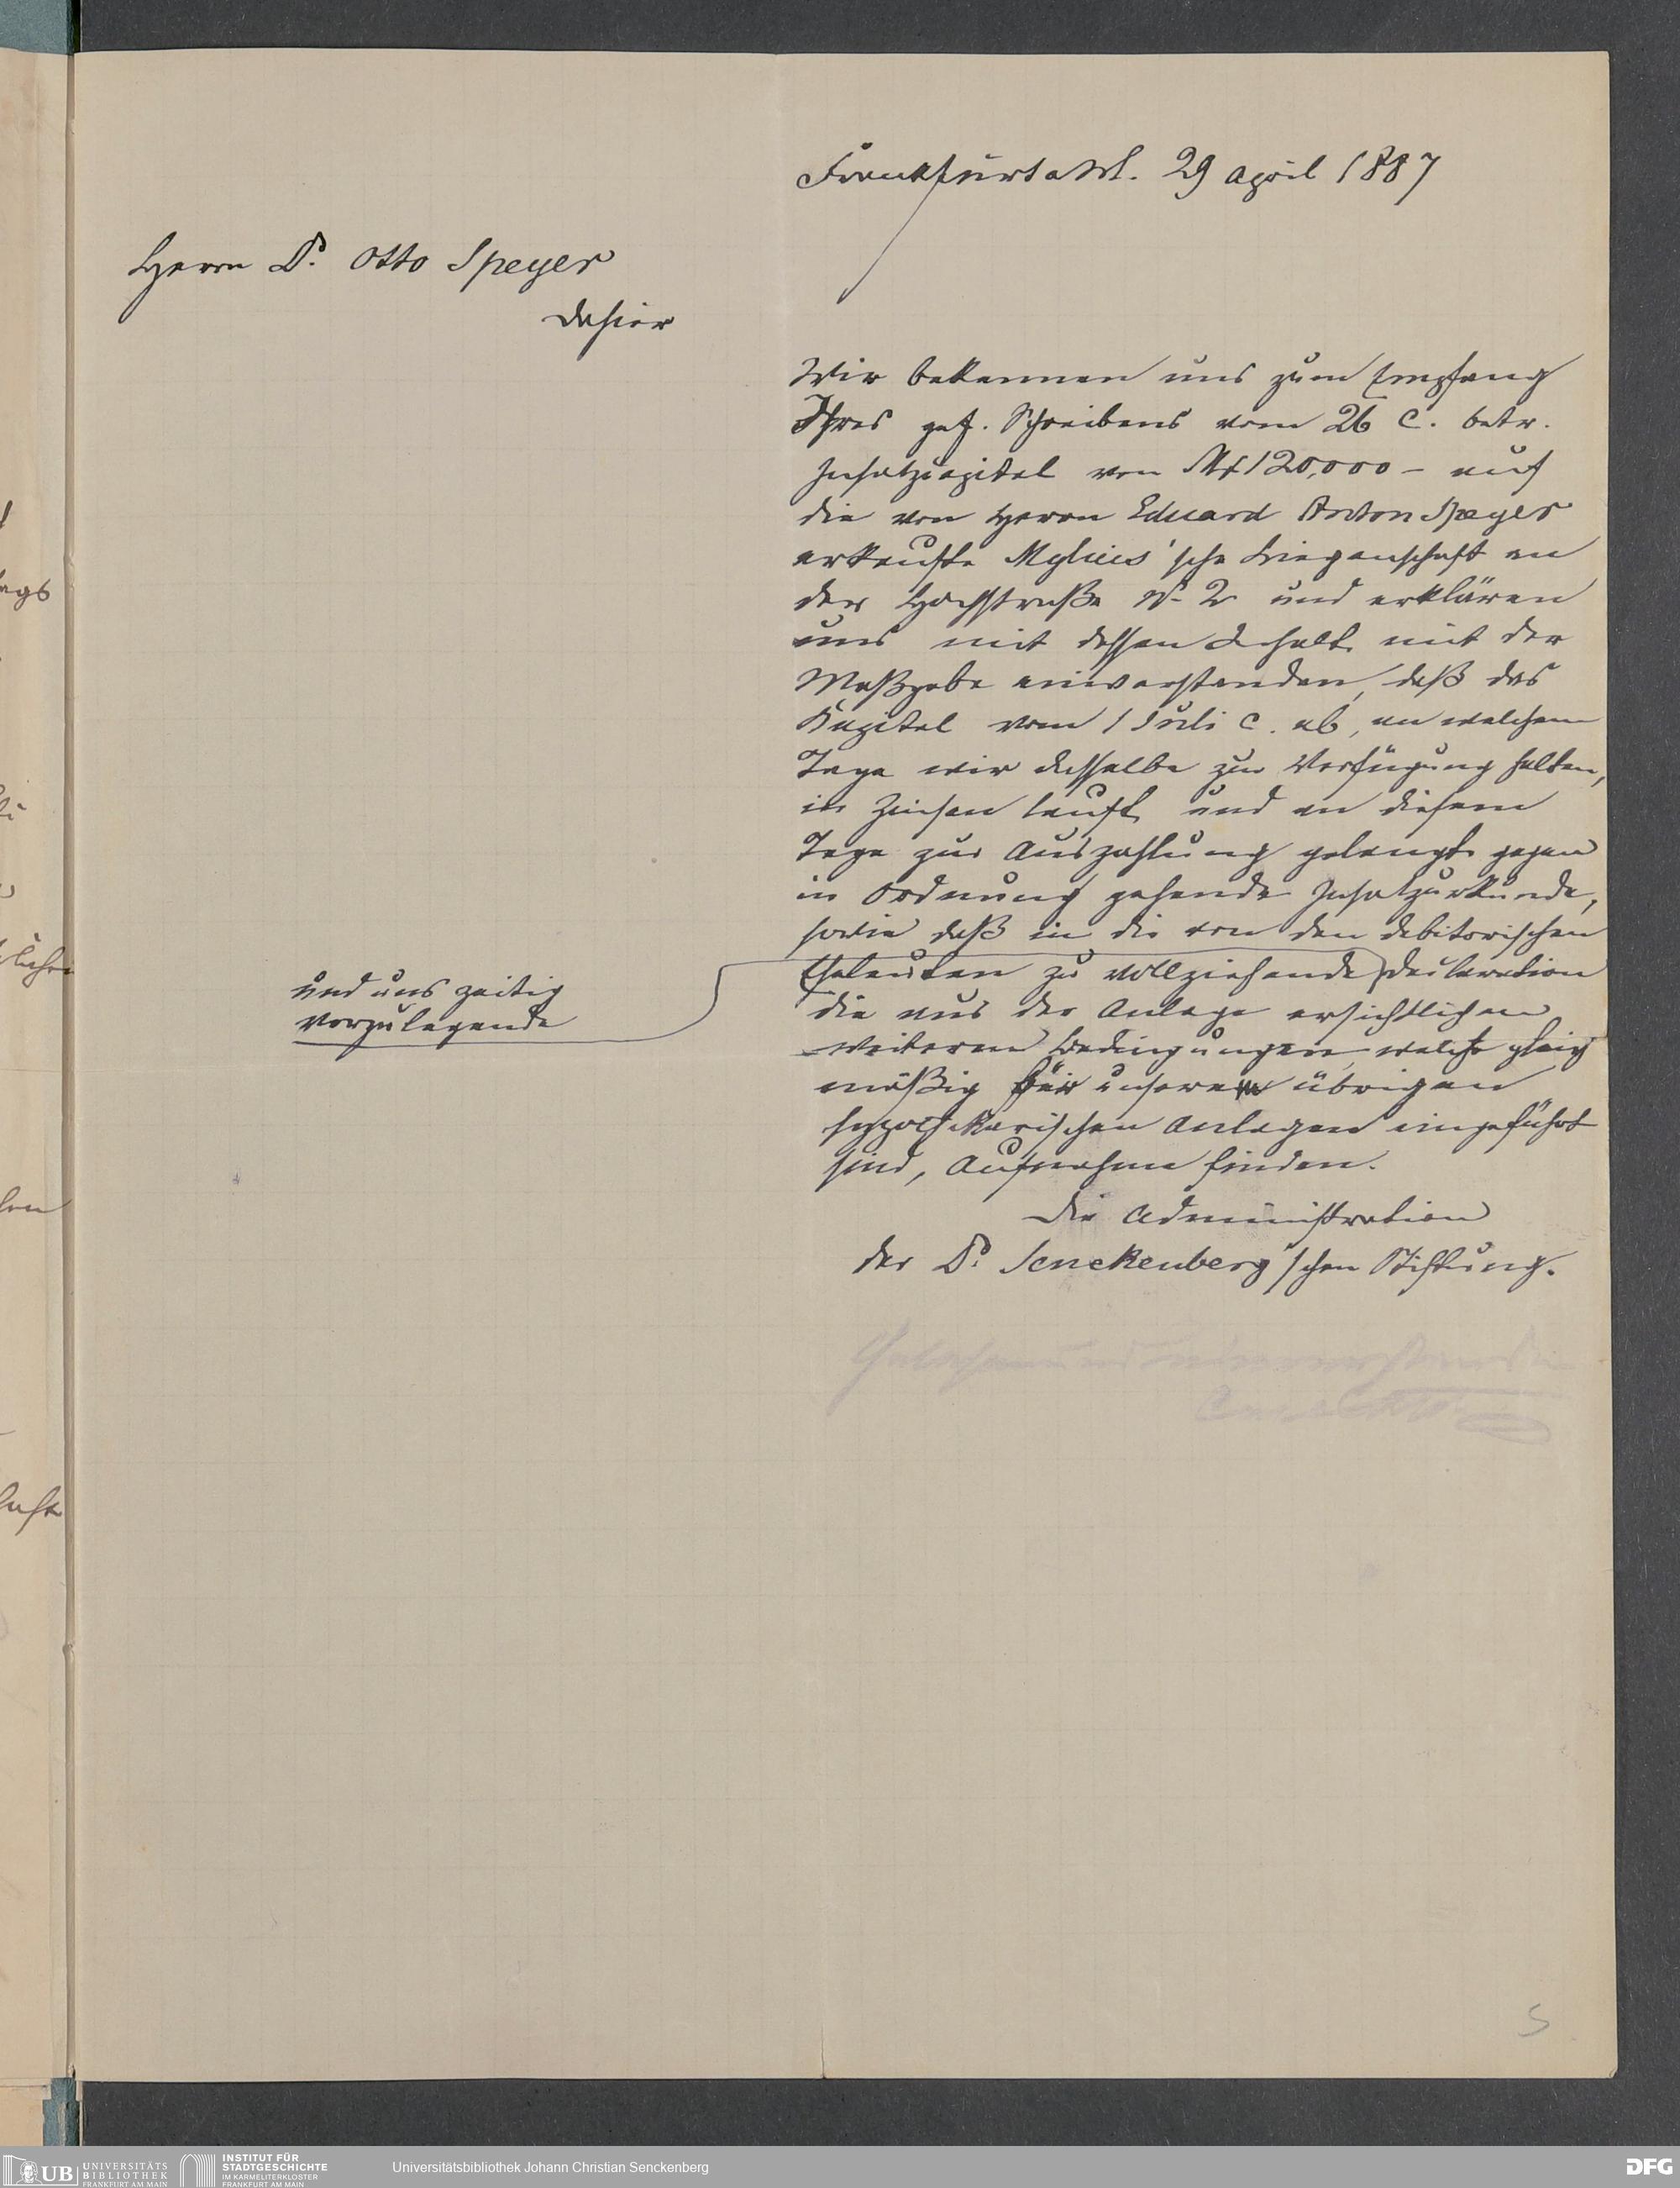 Frankfurt a M. 29 April 1887
Herrn Dr. Otto Speyer
dahier
Wir bekennen uns zum Empfang
Ihres gef. Schreibens vom 26 c. betr.
Insatzcapital von M 120,000 – auf
die von Herrn Eduard Anton Speyer
erkaufte Mylius'sche Liegenschaft an
der Hochstraße No 2 und erklären
uns mit dessen Inhalt mit der
Maßgabe einverstanden, daß das
Kapital vom 1 Juli c. ab, an welchem
Tage wir dasselbe zur Verfügung halten,
in Zinsen lauft und an diesem
Tage zur Auszahlung gelangt gegen
in Ordnung gehende Insatzurkunde,
sowie daß in die von den debitorischen
Eheleuten zu vollziehende Declaration
und uns zeitig
vorzulegende
die aus der Anlage ersichtlichen
weiteren Bedingungen, welche gleich
mäßig für unsere übrigen
hypothekarischen Anlagen eingeführt
sind, Aufnahme finden.
Die Administration
der Dr. Senckenberg'schen Stiftung.
Gelesen und einverstanden
5
UB UNIVERSITÄTS
BIBLIOTHEK
FRANKFURT AM MAIN
INSTITUT FÜR
STADTGESCHICHTE
IM KARMELITERKLOSTER
FRANKFURT AM MAIN
Universitätsbibliothek Johann Christian Senckenberg
DFG